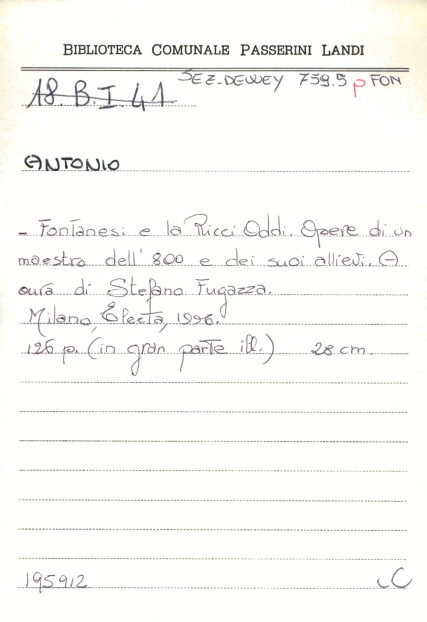 BIBLIOTECA COMUNALE PASSERINI LANDI
SEZ-DEWEY 759.5 p FON
18.B.I.41
ANTONIO
- Fontanesi e la Ricci Oddi. Opere di un
maestro dell' 800 e dei suoi allievi. A
cura di Stefano Fugazza.
Milano, Electa, 1996.
126 p. (in gran parte ill.) 28 cm.
195912